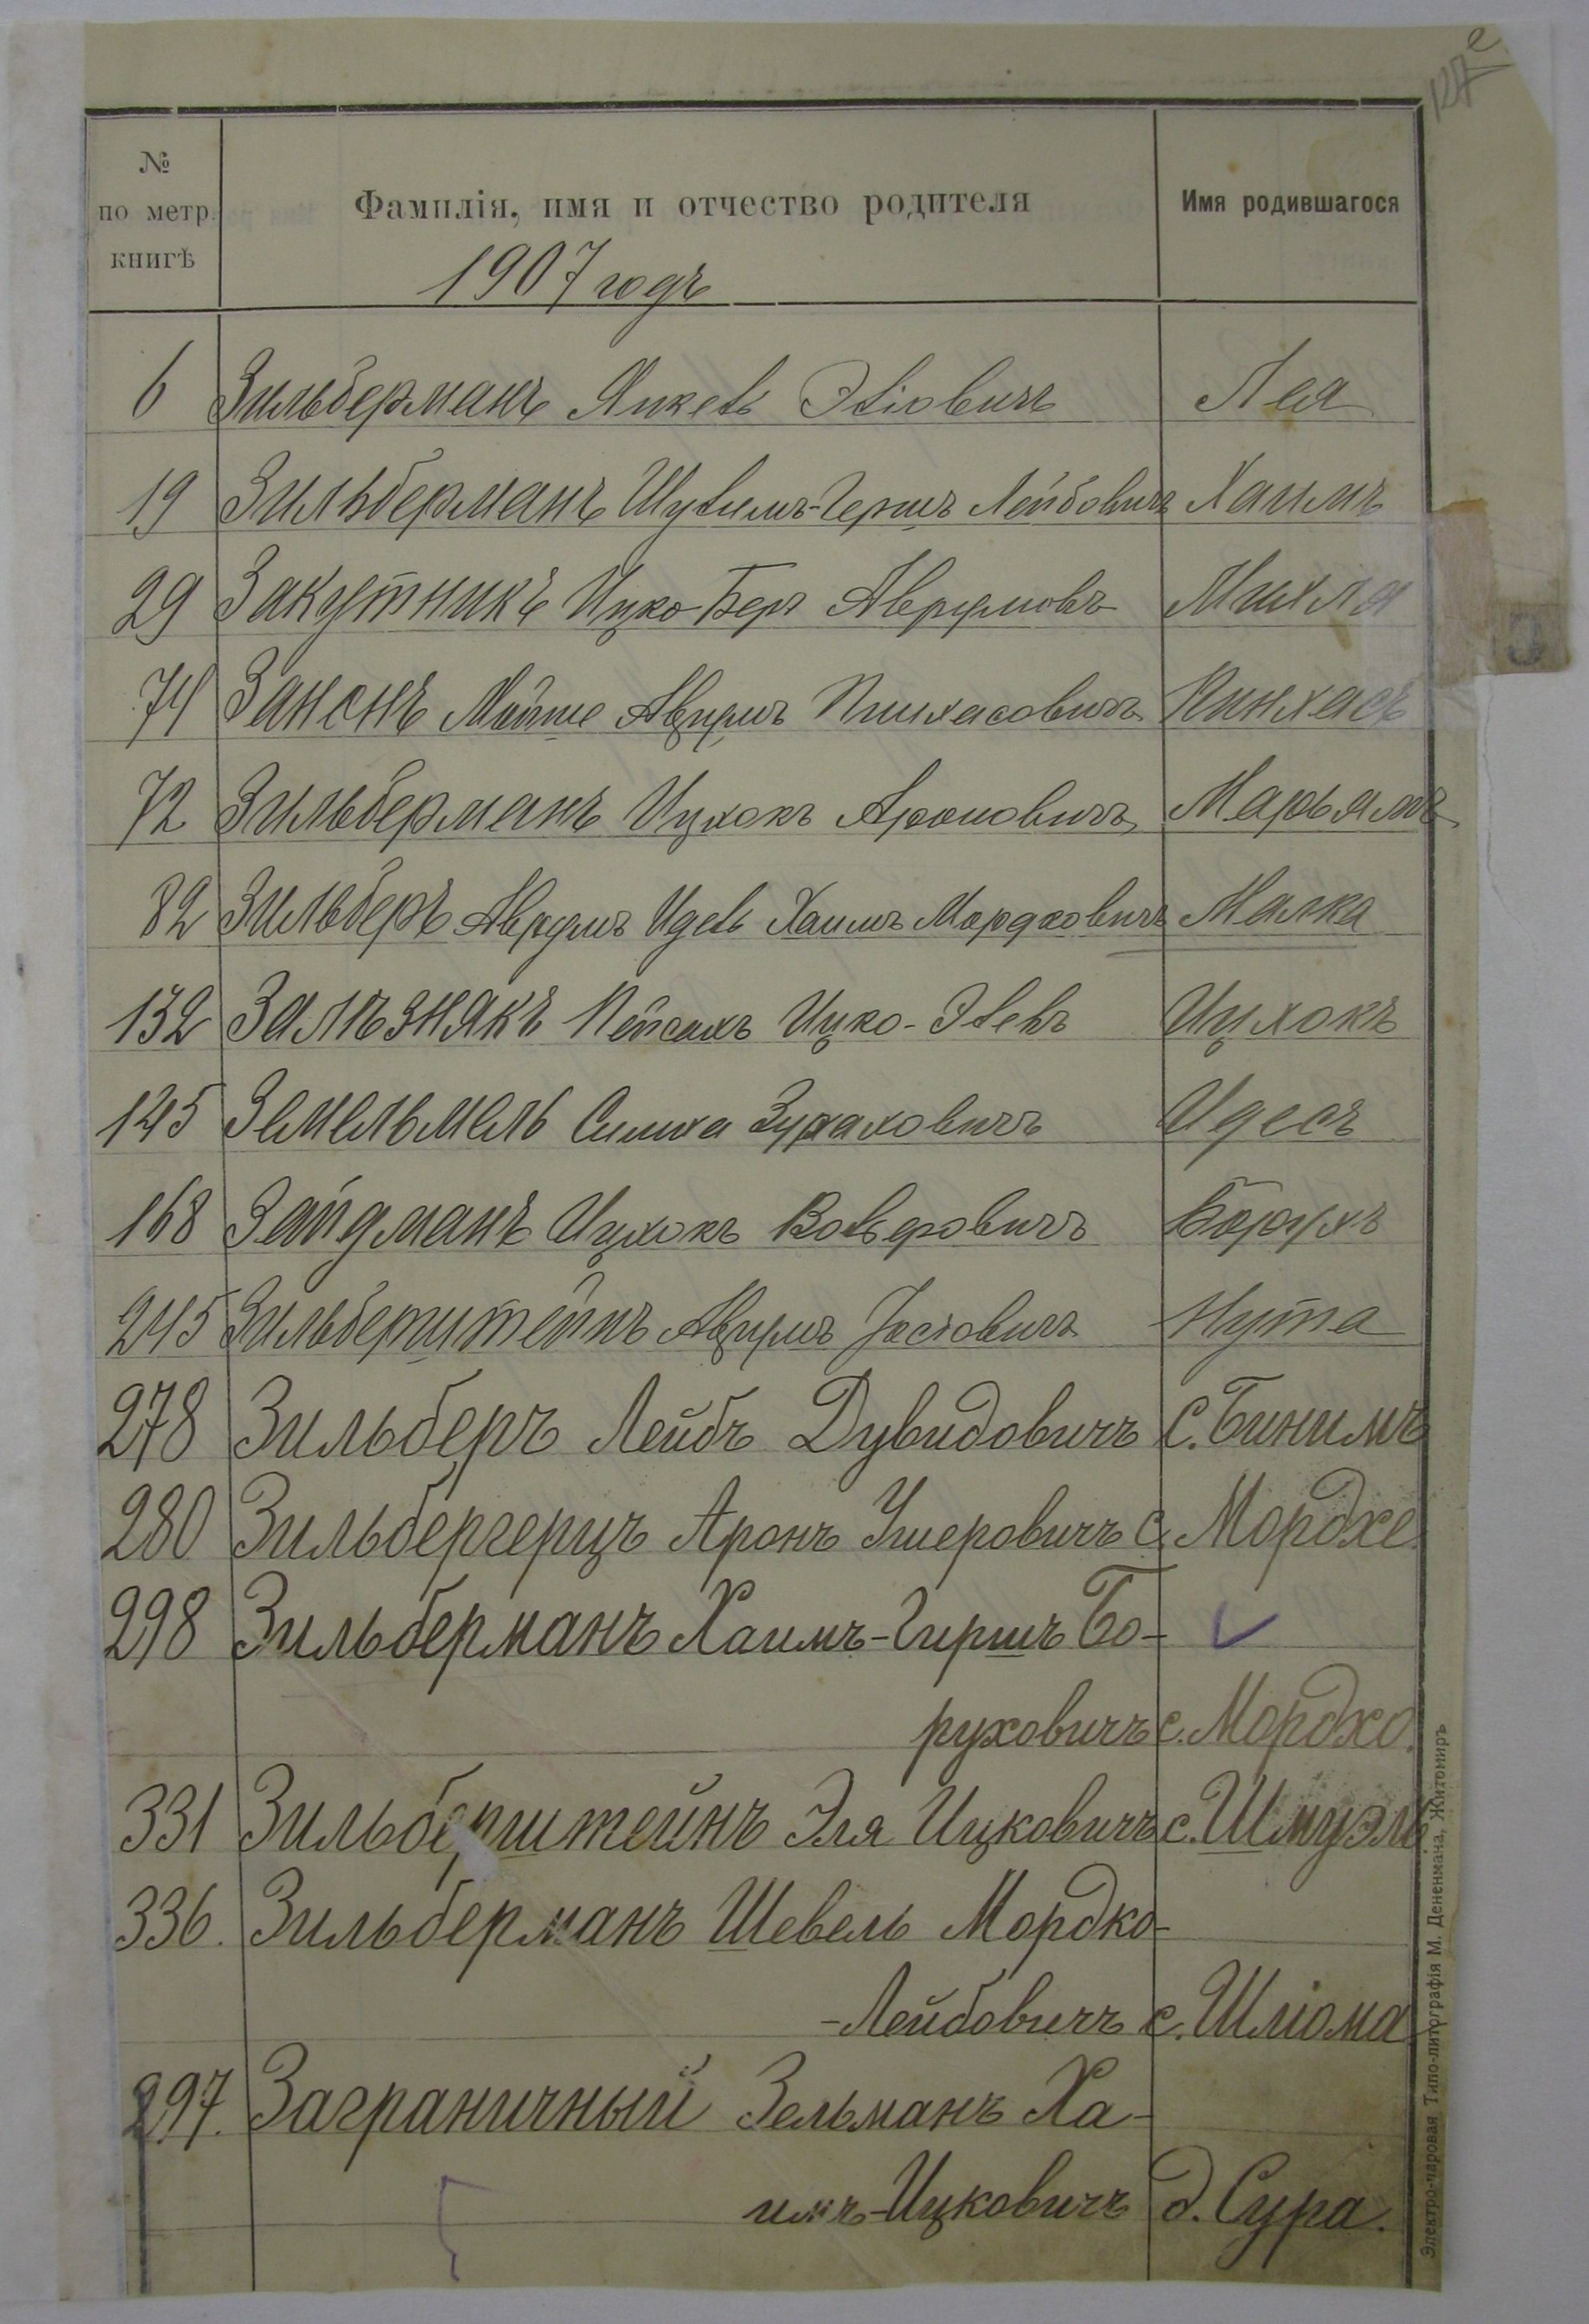 127
№ по метр. книгѣ
Фамилія, имя и отчество родителя
Имя родившагося
1907 годъ
6 Зильберманъ Янкель Эліовичъ Лея
19 Зильберманъ Шулимъ-Гершъ Лейбовичъ Хаимъ
29 Закутникъ Ицко-Бер Аврумовъ Михля
74 Мойше Аврумъ Пинхасовичъ Пинхасъ
72 Зильберманъ Ицхокъ Ароновичъ Марьямъ
82 Зильберъ Аврумъ Идель Хаимъ Мордковичъ Малка
132 Залѣзнякъ Пейсахъ Ицко- Ицхокъ
145 Земельмель Симха Идесъ
168 Зайдманъ Ицхокъ Вольфовичъ Борухъ
245 Зильберштейнъ Аврумъ Нута
278 Зильберъ Лейбъ Дувидовичъ с. Бинимъ
280 Зильбергерцъ Аронъ Ушеровичъ с. Мордхе
298 Зильберманъ Хаимъ-Гиршъ Бо-
руховичъ с. Мордхо.
331 Зильберштейнъ Эля Ицковичъ с. Шмуэль
336. Зильберманъ Шевель Мордко-
-Лейбовичъ с. Шліома
297. Заграничный Зельманъ Ха-
имъ-Ицковичъ д. Сура.
Электро-паровая Типо-литографія М. Дененмана, Житомиръ